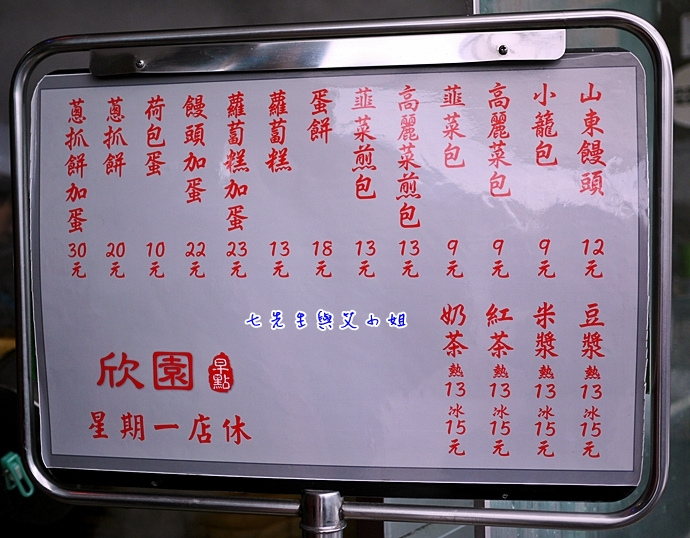 山東饅頭 12元
小籠包 9元
高麗菜包 9元
韮菜包 9元
高麗菜煎包 13元
韮菜煎包 13元
蛋餅 18元
蘿蔔糕 13元
蘿蔔糕加蛋 23元
饅頭加蛋 22元
荷包蛋 10元
蔥抓餅 20元
蔥抓餅加蛋 30元
豆漿 熱13 冰15元
米漿 熱13 冰15元
紅茶 熱13 冰15元
奶茶 熱13 冰15元
七先生與艾小姐
欣園 早點
星期一店休